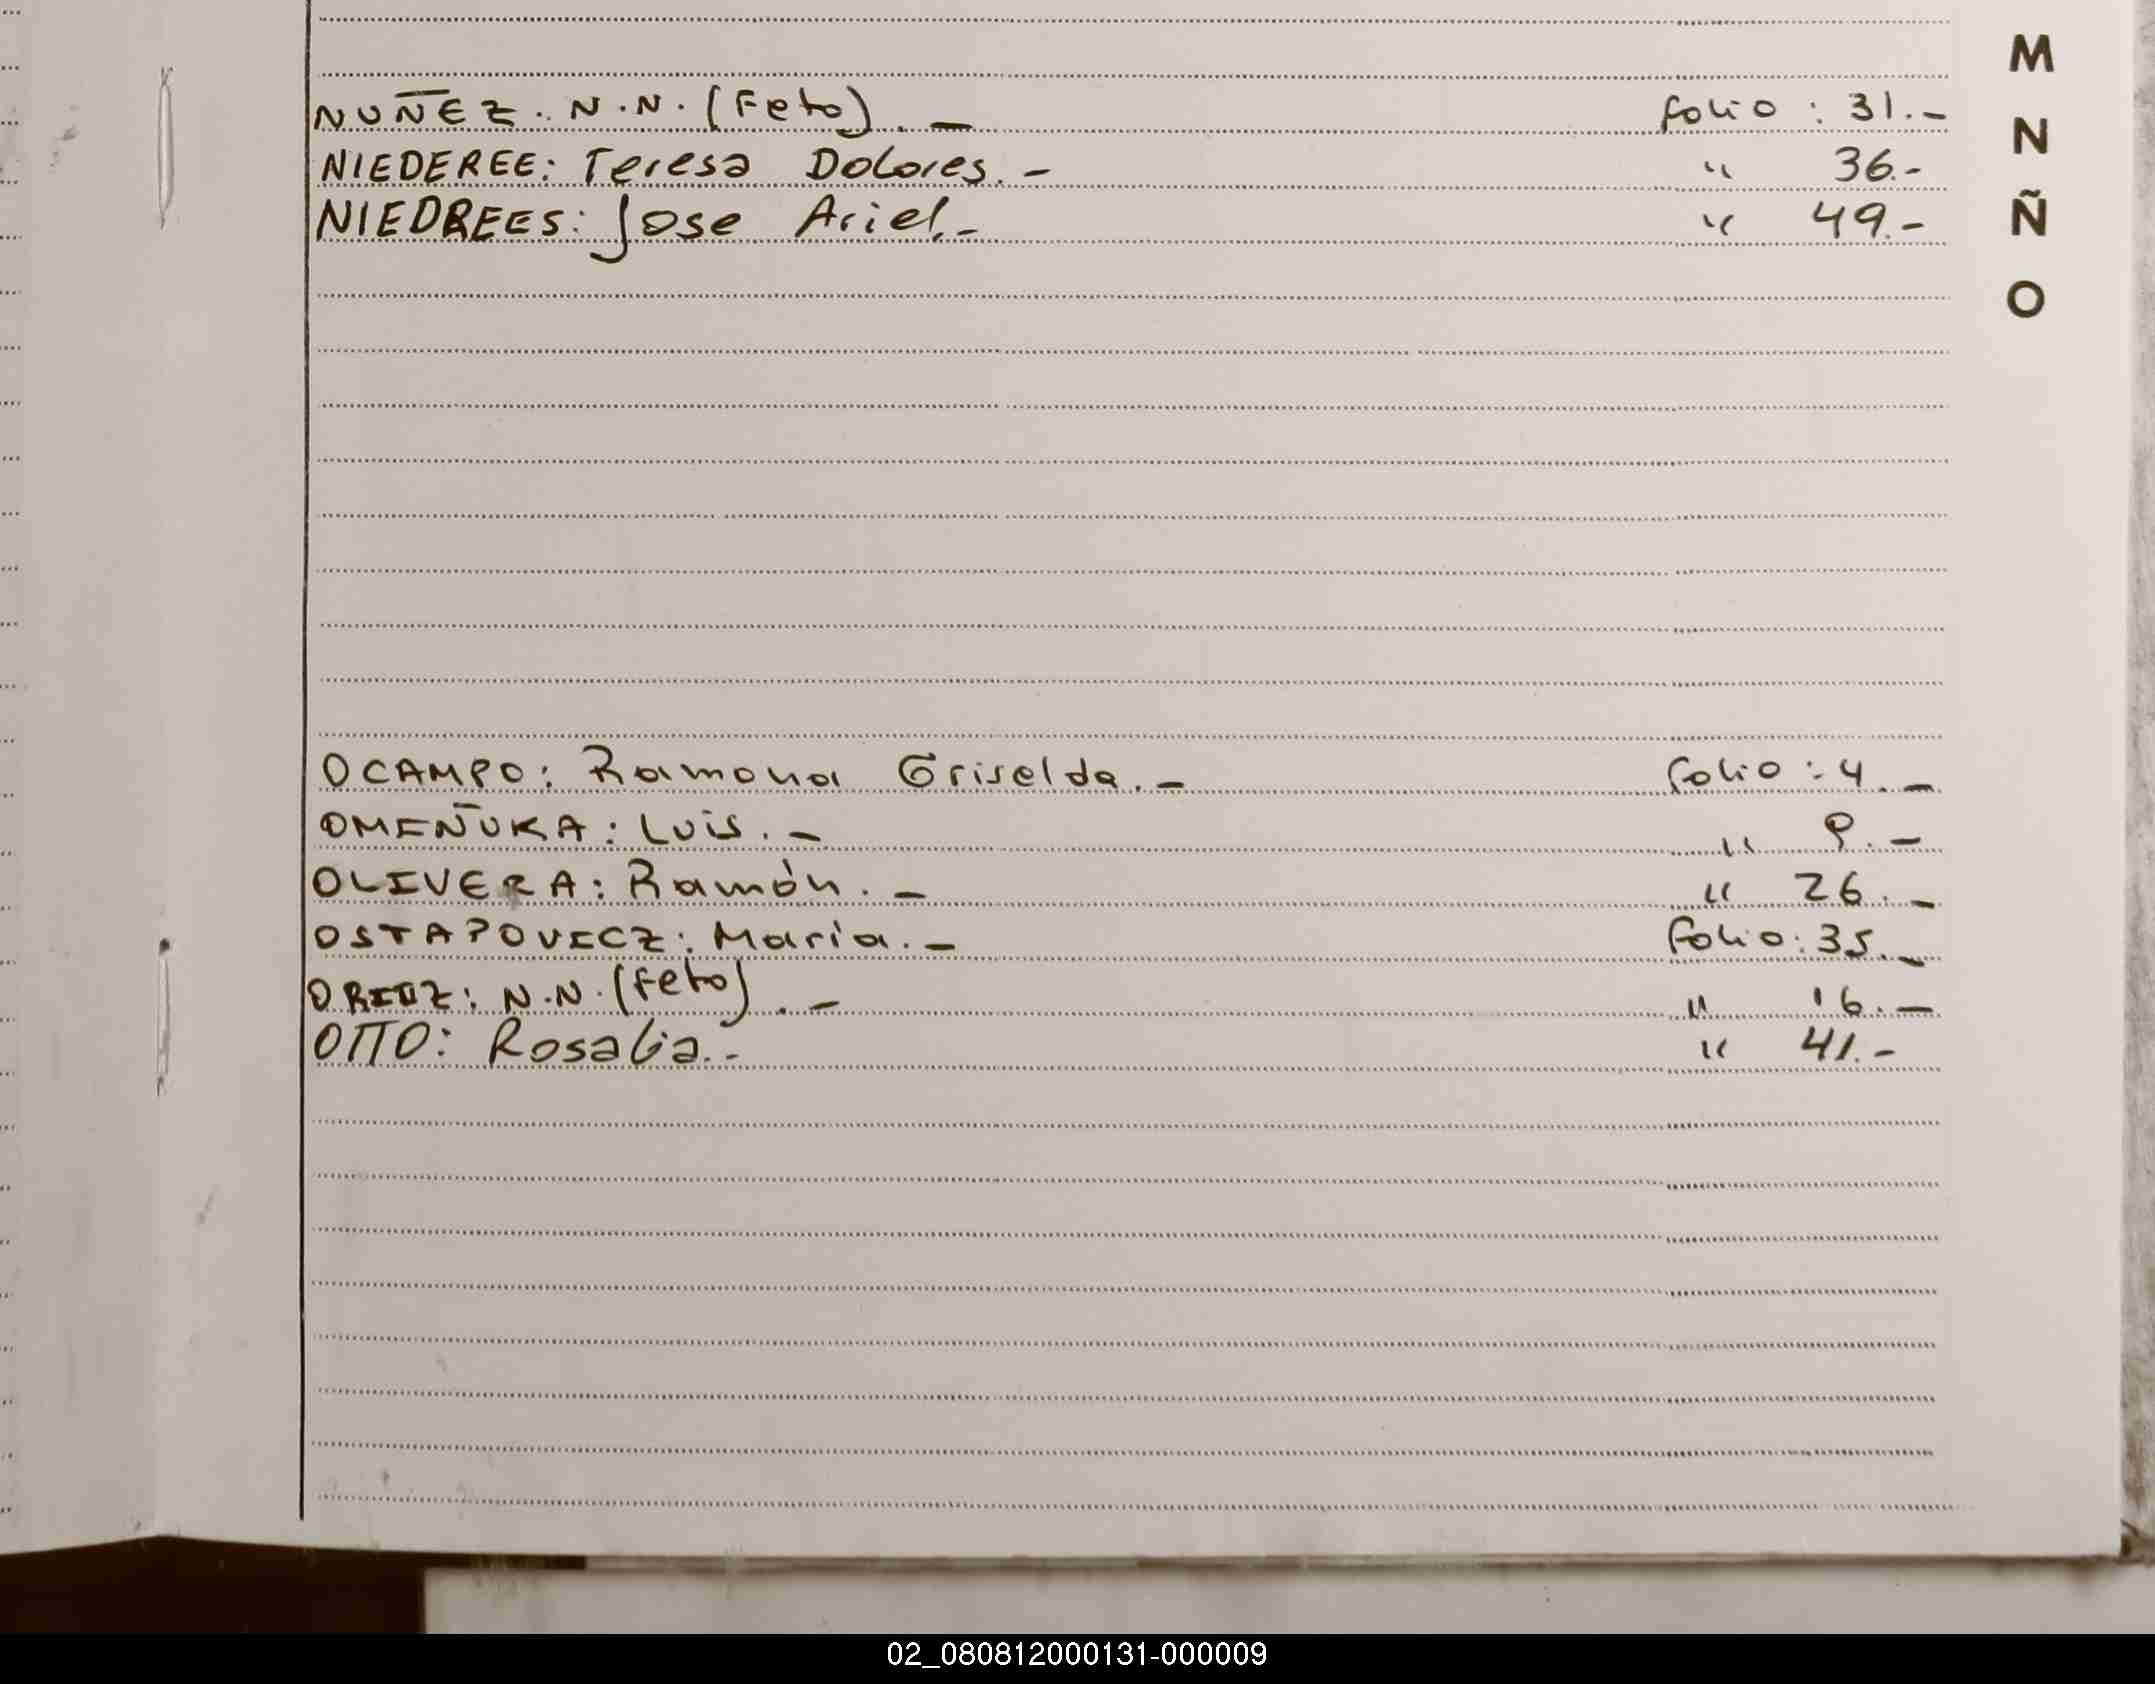 NUÑEZ. N.N. (Feto). — folio : 31.-
NIEDEREE: Teresa Dolores.- " 36.-
NIEDREES: Jose Ariel.- " 49.-
M
N
Ñ
O
OCAMPO: Ramona Griselda.- folio : 4.-
OMEÑUKA: Luis.- " 9.-
OLIVERA: Ramón.- " 26.-
OSTAPOVICZ: Maria.- folio: 35.-
N.N. (Feto).- " 16.-
OTTO: Rosalia.- " 41.-
02_080812000131-000009